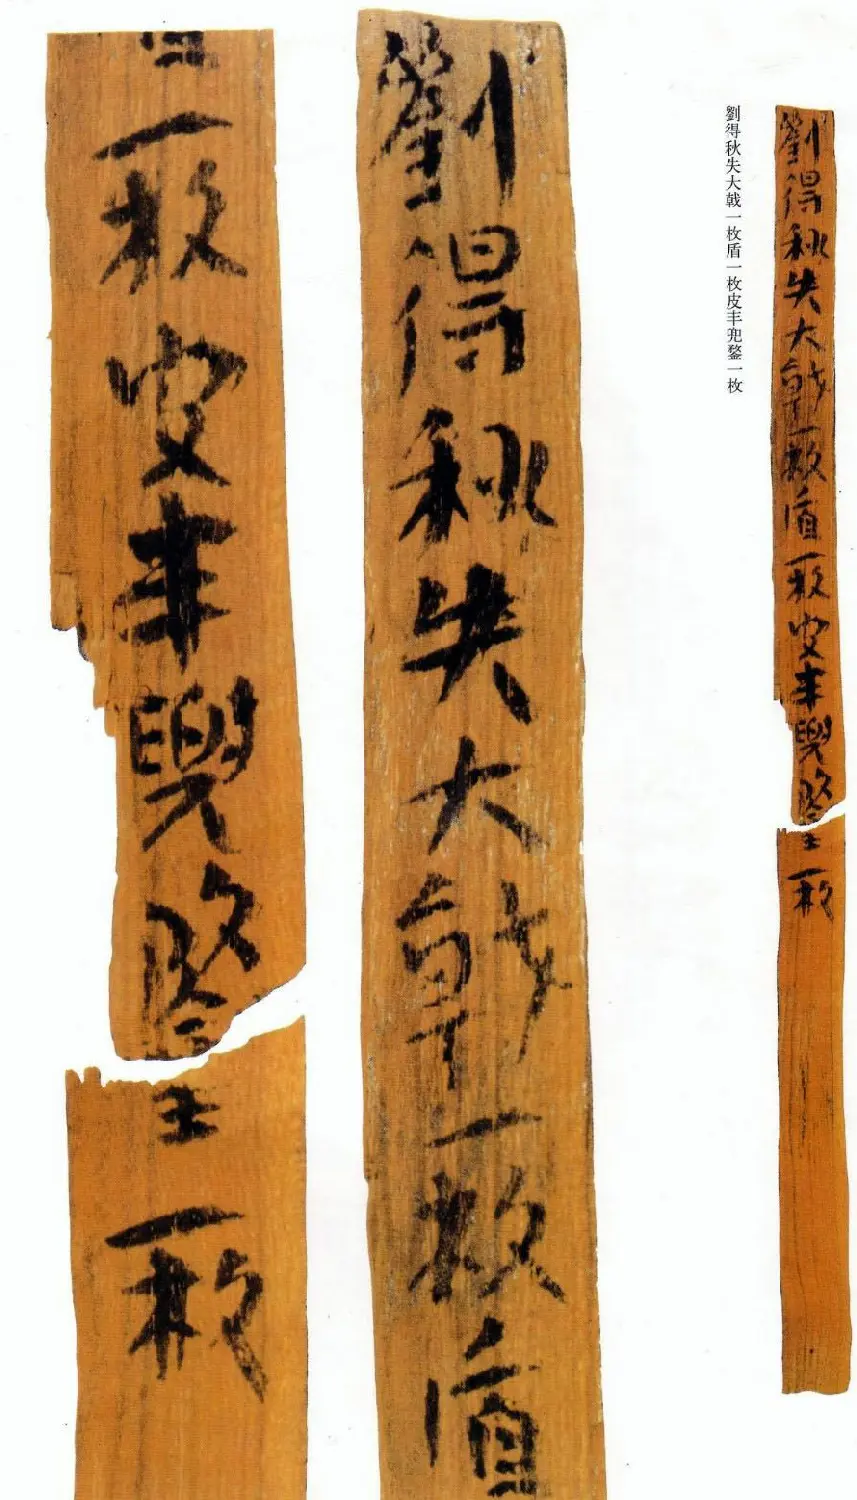 劉得秋失大戟一枚盾一枚皮丰兜鍪一枚
劉得秋失大戟一枚盾一枚皮丰兜鍪一枚
劉得秋失大戟一枚盾
一枚皮丰兜鍪一枚